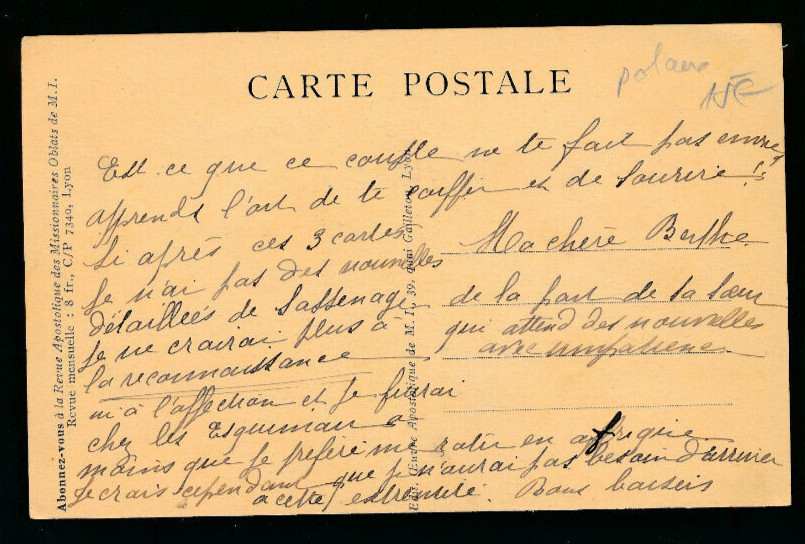 CARTE POSTALE
polaire
15€
Est ce que ce couple ne te fait pas envie,
apprends l'art de te coiffer et de sourire !!
Si après ces 3 cartes
je n'ai pas des nouvelles
détaillées de Sassenage
je ne crairai plus à
la reconnaissance
ni à l'affection et je fuirai
chez les Esquimau à
moins que je préfère me rotir en afrique
je crais cependant que je n'aurai pas besoin d'arriver
a cette extremité. Bons baisers
Ma chère Berthe
de la part de ta sœur
qui attend des nouvelles
avec impatience
Abonnez-vous à la Revue Apostolique des Missionnaires Oblats de M. I.
Revue mensuelle : 8 fr., C/P 7349, Lyon
Edit. Œuvre Apostolique de M. I., 39, quai Gailleton, Lyon